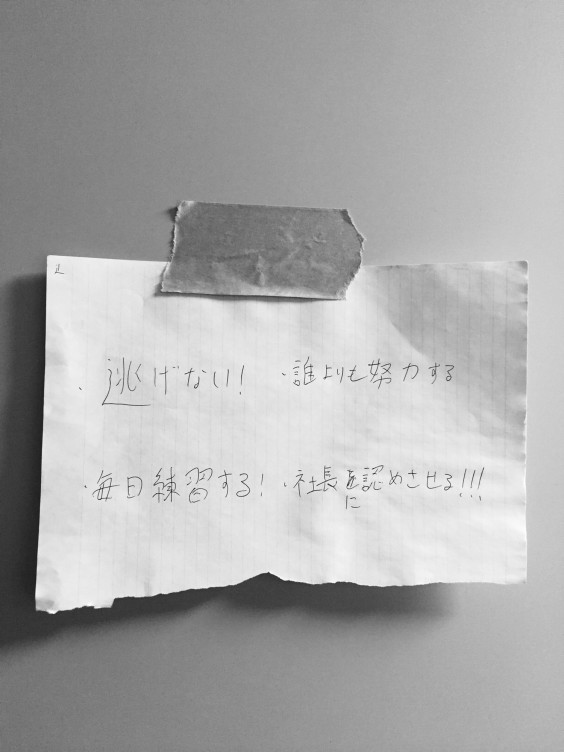 ・逃げない! ・誰よりも努力する
・毎日練習する! ・社長を認めさせる!!!
に